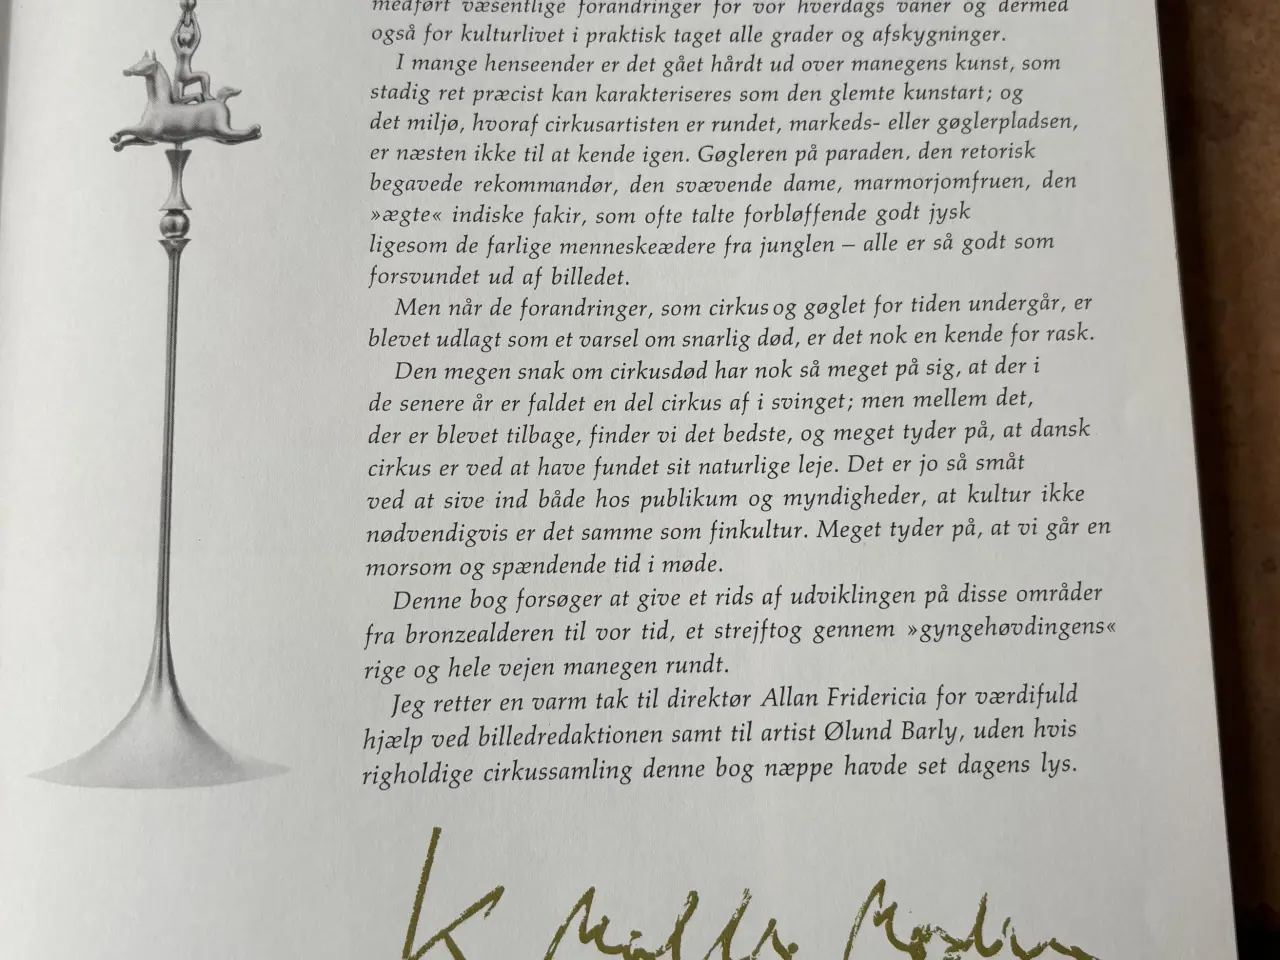 medført væsentlige forandringer for vor hverdags vaner og dermed
også for kulturlivet i praktisk taget alle grader og afskygninger.
I mange henseender er det gået hårdt ud over manegens kunst, som
stadig ret præcist kan karakteriseres som den glemte kunstart; og
det miljø, hvoraf cirkusartisten er rundet, markeds- eller gøglerpladsen,
er næsten ikke til at kende igen. Gøgleren på paraden, den retorisk
begavede rekommandør, den svævende dame, marmorjomfruen, den
»ægte« indiske fakir, som ofte talte forbløffende godt jysk
ligesom de farlige menneskeædere fra junglen – alle er så godt som
forsvundet ud af billedet.
Men når de forandringer, som cirkus og gøglet for tiden undergår, er
blevet udlagt som et varsel om snarlig død, er det nok en kende for rask.
Den megen snak om cirkusdød har nok så meget på sig, at der i
de senere år er faldet en del cirkus af i svinget; men mellem det,
der er blevet tilbage, finder vi det bedste, og meget tyder på, at dansk
cirkus er ved at have fundet sit naturlige leje. Det er jo så småt
ved at sive ind både hos publikum og myndigheder, at kultur ikke
nødvendigvis er det samme som finkultur. Meget tyder på, at vi går en
morsom og spændende tid i møde.
Denne bog forsøger at give et rids af udviklingen på disse områder
fra bronzealderen til vor tid, et strejftog gennem »gyngehøvdingens«
rige og hele vejen manegen rundt.
Jeg retter en varm tak til direktør Allan Fridericia for værdifuld
hjælp ved billedredaktionen samt til artist Ølund Barly, uden hvis
righoldige cirkussamling denne bog næppe havde set dagens lys.
K